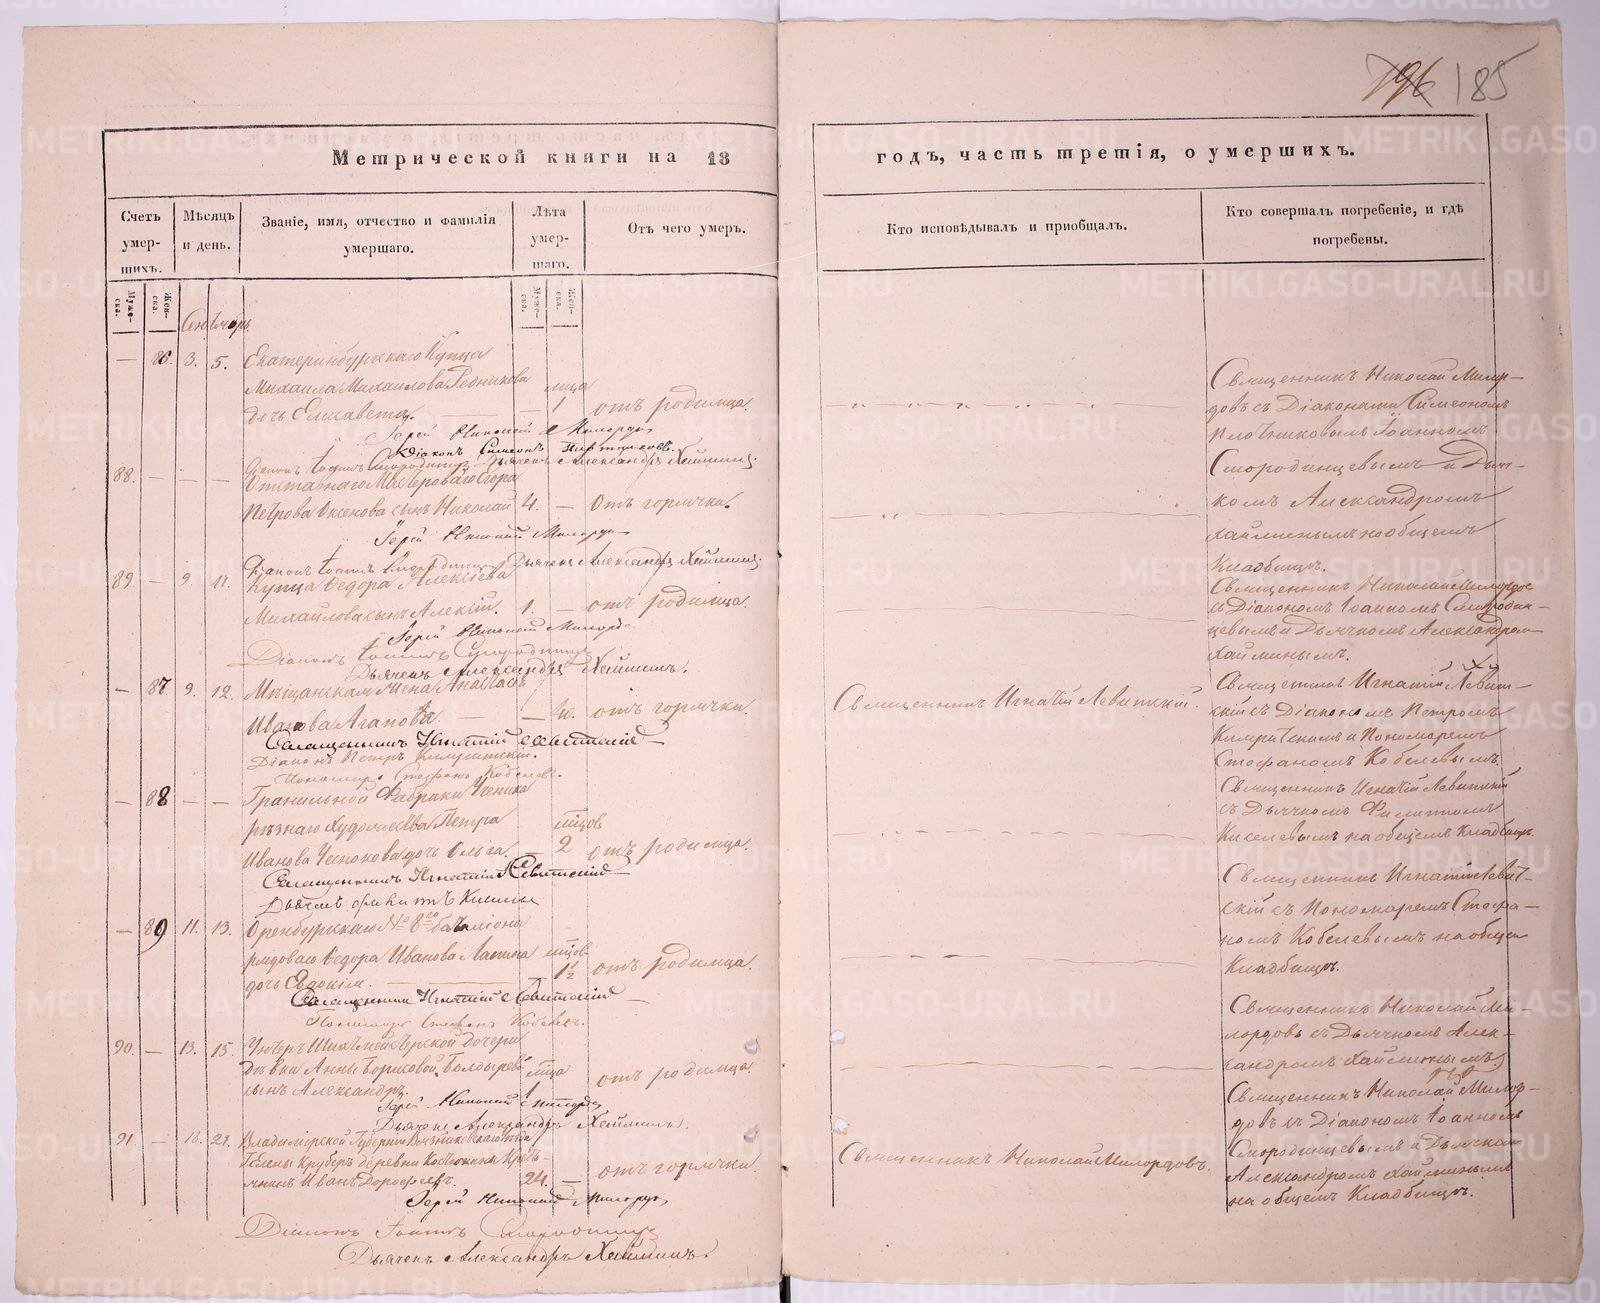 196 185
Метрической книги на 18
годъ, часть третія, о умершихъ.
Счетъ умер-шихъ.
Мѣсяцъ и день.
Званіе, имя, отчество и фамилія умершаго.
Лѣта умер-шаго.
Отъ чего умеръ.
Кто исповѣдывалъ и пріобщалъ.
Кто совершалъ погребеніе, и гдѣ погребены.
Муже-ска.
Жен-ска.
Муже-ска.
Жен-ска.
Сентябрь
— 86. 3. 5. Екатеринбургскаго Купца
Михаила Михайлова Рѣдникова
дочь Елисавета. — 1 отъ родимца.
Іерей Николай Милордовъ
Діаконъ Симеонъ Плотниковъ.
Діаконъ Іоаннъ Смородинцевъ Дьячекъ Александръ Хайминъ.
Священникъ Николай Милор-
довъ съ Діаконами Симеономъ
Плотниковымъ Іоанномъ
Смородинцевымъ и Дьяч-
комъ Александромъ
Хайминымъ на общемъ
Кладбищѣ.
88. — — — Отставнаго Мастероваго Егора
Петрова Аксенова сынъ Николай 4. — Отъ горячки.
Іерей Николай Милордовъ
Діаконъ Іоаннъ Смородинцевъ Дьячекъ Александръ Хайминъ.
89. — 9. 11. Купца Ѳедора Алексіева
Михайлова сынъ Алексій. 1. — отъ родимца.
Іерей Николай Милордовъ
Діаконъ Іоаннъ Смородинцевъ
Дьячекъ Александръ Хайминъ.
Священникъ Николай Милордовъ
съ Діакономъ Іоанномъ Смородин-
цевымъ и Дьячкомъ Александромъ
Хайминымъ.
— 87. 9. 12. Мѣщанская Жена Анастасія
Иванова Агапова. — — 40. отъ горячки.
Священникъ Игнатій Левитскій
Діаконъ Петръ
Пономарь Стефанъ Кобелевъ.
Священникъ Игнатій Левитскій.
Священникъ Игнатій Левит-
скій съ Діакономъ Петромъ
и Пономаремъ
Стефаномъ Кобелевымъ.
— 88 — — Гранильной Фабрики Ученика
рѣзнаго Художества Петра мѣсцовъ
Иванова Чеснокова дочь Ольга. — 2 отъ родимца.
Священникъ Игнатій Левитскій
Священникъ Игнатій Левитскій
съ Дьячкомъ
Киселевымъ на общемъ Кладбищѣ.
— 89 11. 13. Оренбургскаго № 8го баталіона
рядоваго Ѳедора Иванова Лапина мѣсцов
дочь Евдокія. — 1½ отъ родимца.
Священникъ Игнатій Левитскій
Пономарь Стефанъ Кобелевъ.
Священникъ Игнатій Левит-
скій съ Пономаремъ Стефа-
номъ Кобелевымъ на общемъ
Кладбищѣ.
90. — 13. 15. Унтеръ Шихтмейстерской дочери
Дѣвки Анны Борисовой Болдыревой
сынъ Александръ. отъ родимца.
Іерей Николай Милордовъ
Дьячекъ Александръ Хайминъ.
Священникъ Николай Ми-
лордовъ съ Дьячкомъ Алек-
сандромъ Хайминымъ.
91. — 18. 21. Владимірской Губерніи Вязниковскаго Уѣзда
деревни Кресть-
янинъ Иванъ Дорофеевъ. 24. — отъ горячки.
Іерей Николай Милордовъ
Діаконъ Іоаннъ Смородинцевъ
Дьячекъ Александръ Хайминъ.
Священникъ Николай Милордовъ.
Священникъ Николай Милор-
довъ съ Діакономъ Іоанномъ
Смородинцевымъ и Дьячкомъ
Александромъ Хайминымъ
на общемъ Кладбищѣ.
METRIKI.GASO-URAL.RU